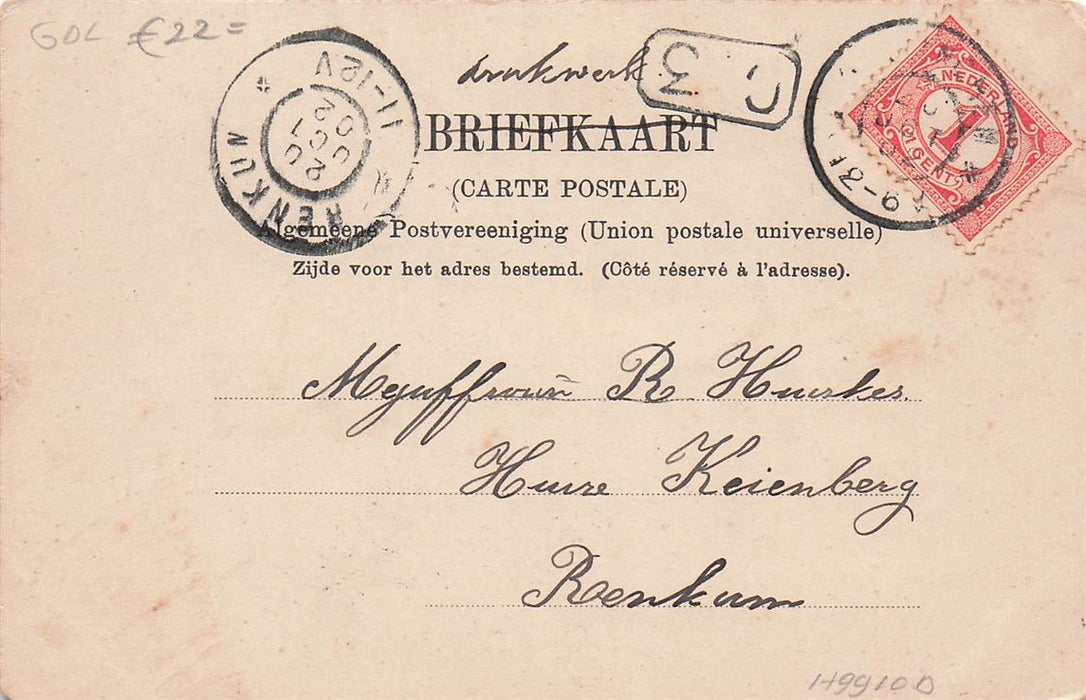 GDL €22=
drukwerk
BRIEFKAART
(CARTE POSTALE)
Algemeene Postvereeniging (Union postale universelle)
Zijde voor het adres bestemd. (Côté réservé à l'adresse).
Mejuffrouw R Huurkes.
Huize Keienberg
Renkum
RENKUM
11-12V
NEDERLAND
1
CENT
3
H9910D